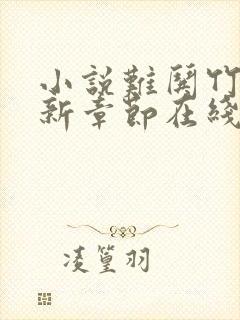 小說難闋竹
新章節在綫
凌篁羽